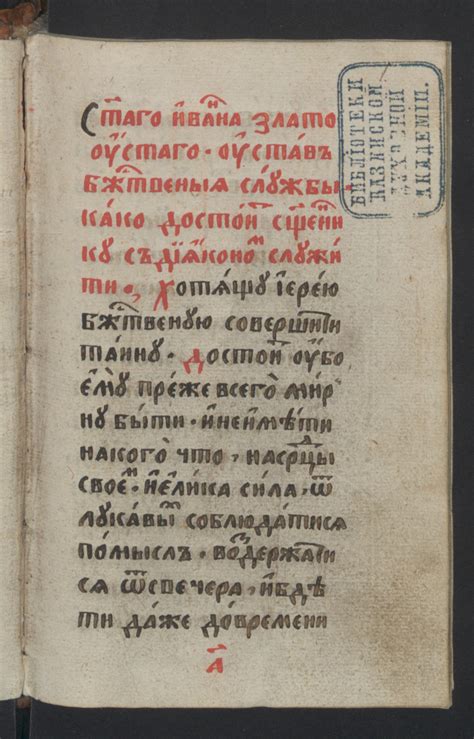 Ст҃аго їѡа́нна злато
оу́стаго · оу́ста́въ
бж҃твеныѧ слу́жбы
ка́ко досто́ит сщ҃е́нни
ку съ дїѧ́коном служи́
ти · хотѧ́щу їере́ю
бж҃твеную соверши́ти
та́ину · досто́ит оу́бо
ему̀ пре́же всего̀ мир
ну бы́ти · и не имѣ́ти
на кого̀ что̀, на ср҃дцы
свое́м · и ели́ка си́ла · ѿ
лука́вых соблюда́тисѧ
по́мыслъ · воздержа́ти
сѧ ѿ с вечера, и бдѣ́
ти да́же до вре́мени
а҃
БИБЛІОТЕКИ
КАЗАНСКОЙ
ДУХОВНОЙ
АКАДЕМІИ.